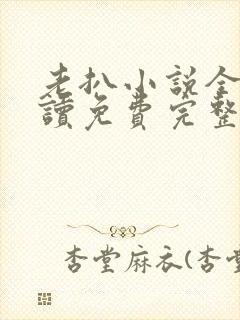 老扒小說全
讀免費完整
杏堂麻衣(杏堂